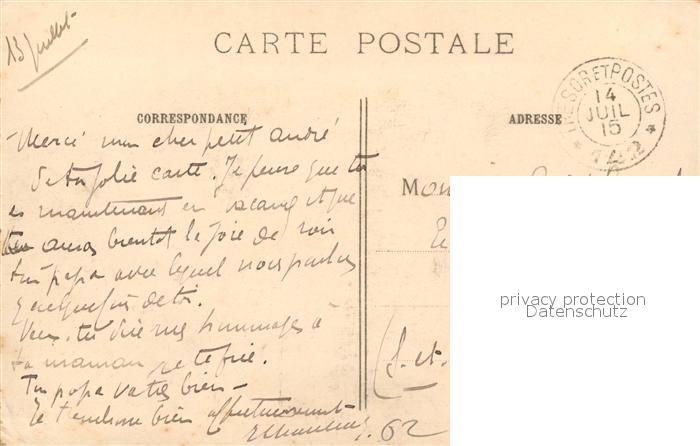 13 juillet
CARTE POSTALE
TRESOR ET POSTES
14
JUIL
15
* 142 *
CORRESPONDANCE
ADRESSE
Merci mon cher petit andré
de ta jolie carte. Je pense que tu
es maintenant en vacances et que
tu auras bientôt la joie de voir
ton papa avec lequel nous parlons
quelquefois de toi.
Veux-tu dire mes hommages à
ta maman je te prie.
Ton papa va très bien -
Je t'embrasse bien affectueusement
62
privacy protection
Datenschutz